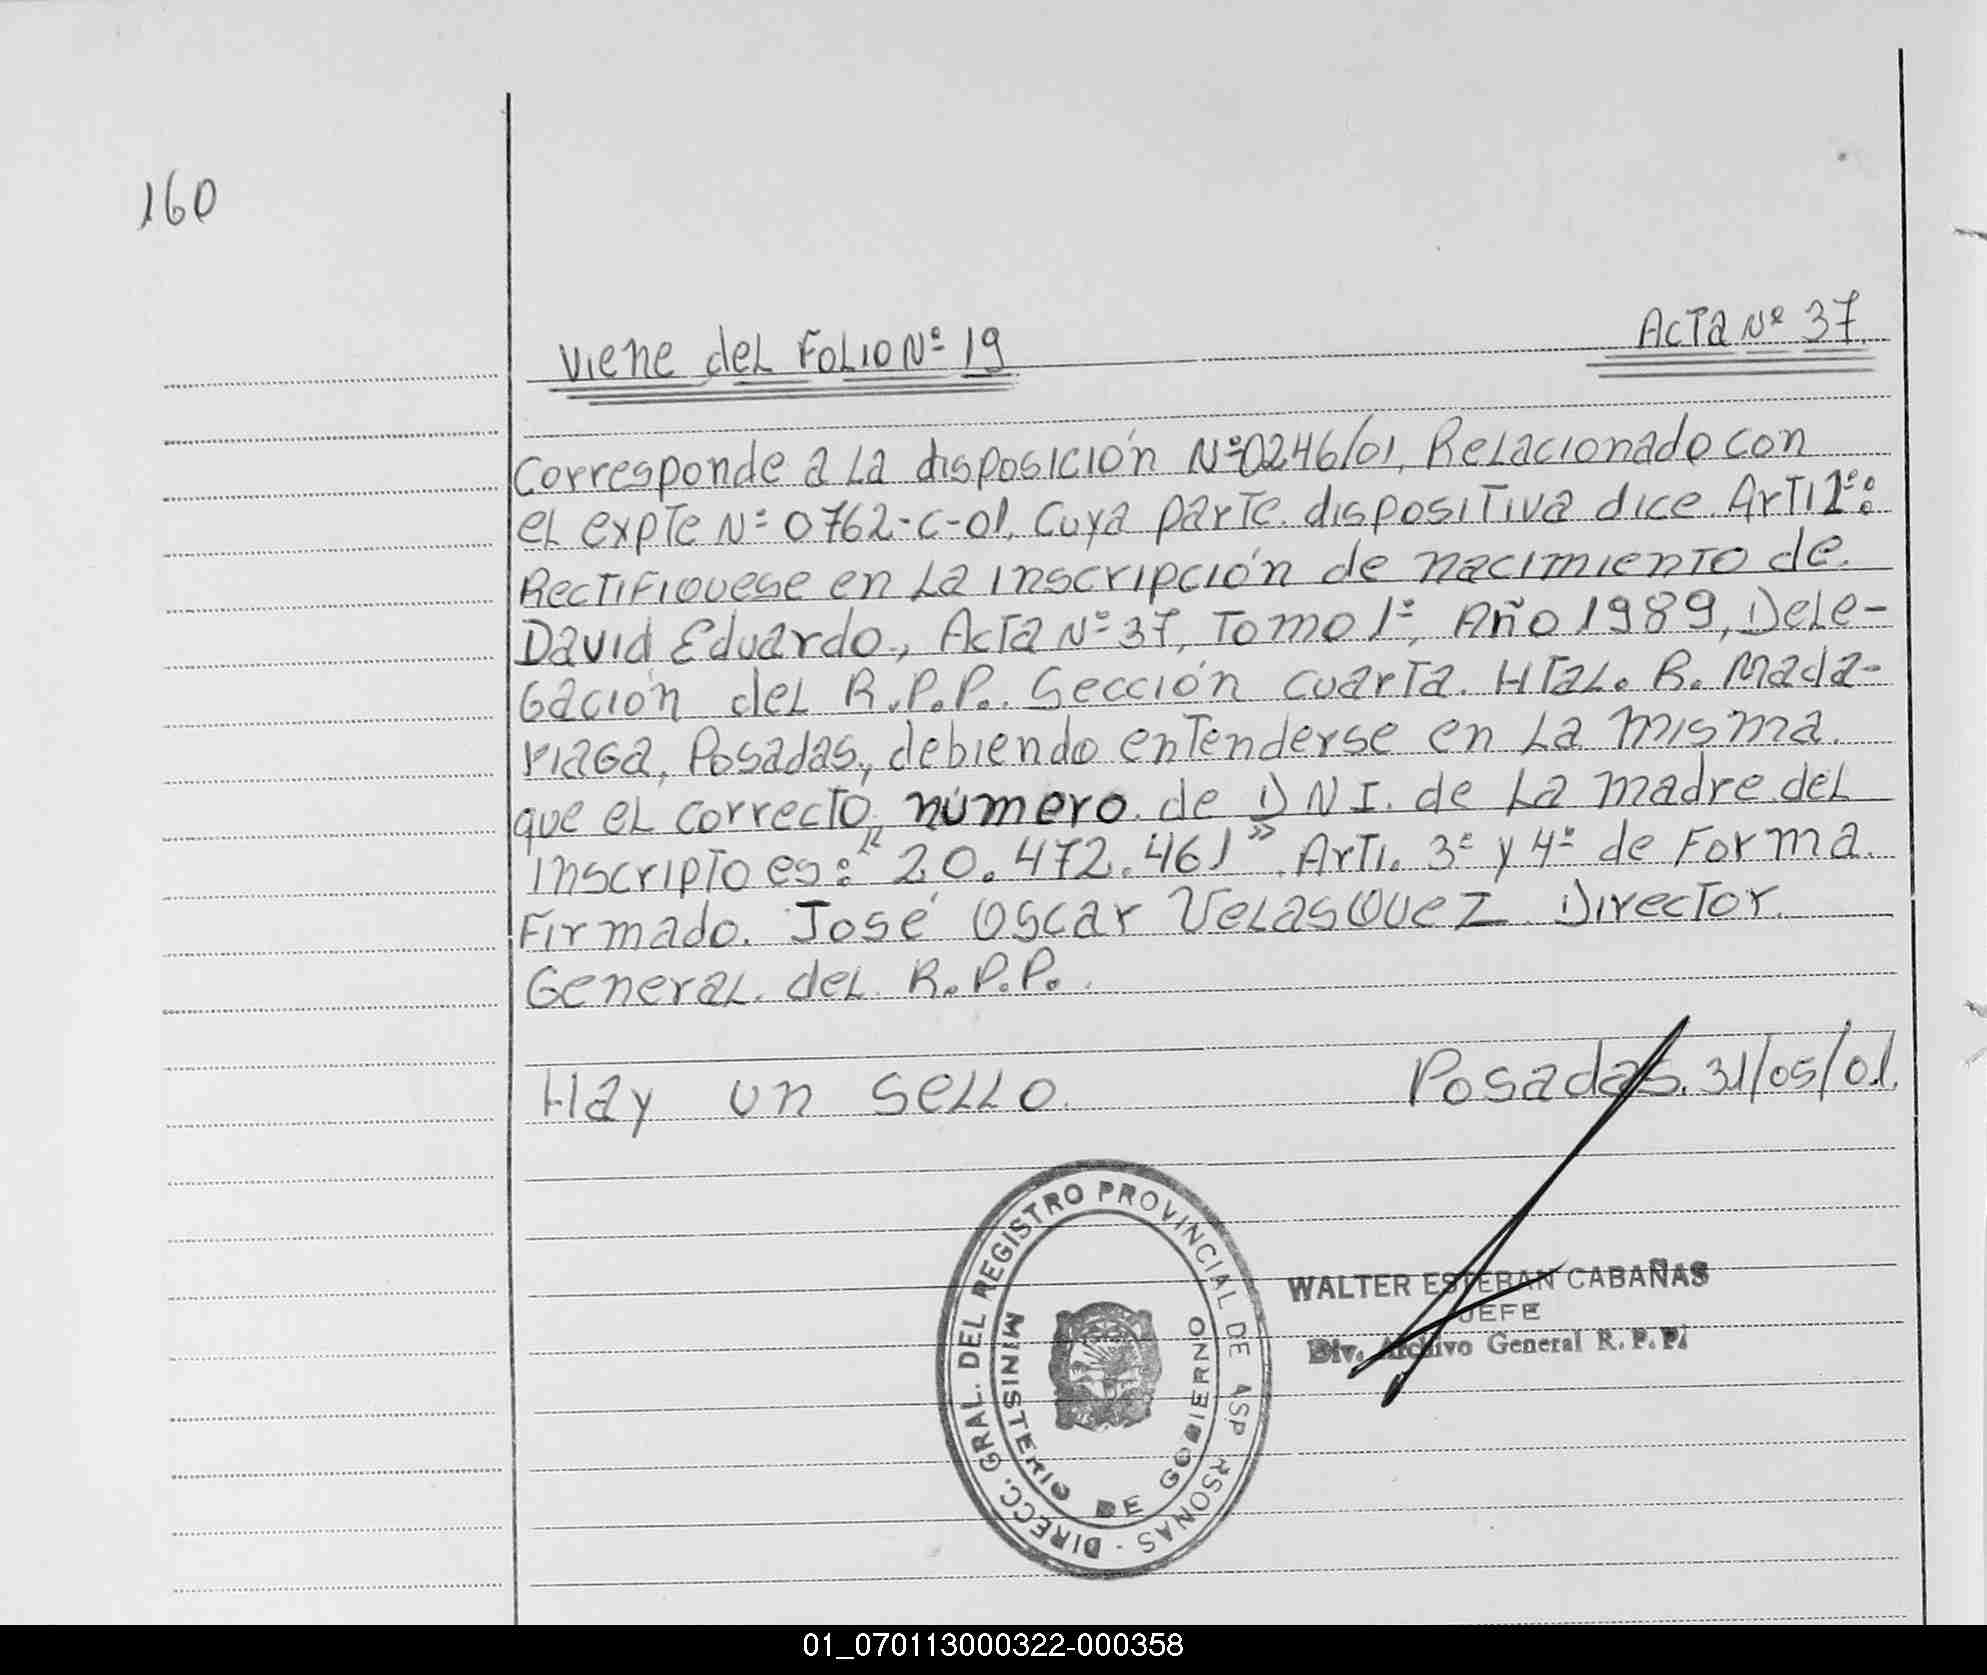 160
Viene del Folio Nº 19
Acta Nº 37
Corresponde a la disposición Nº 0246/01, Relacionado con
el expte Nº 0762-C-01, Cuya parte dispositiva dice Arti 2º:
Rectifiquese en la inscripción de nacimiento de
David Eduardo, Acta Nº 37, Tomo 1º, Año 1989, Dele-
gación del R.P.P. Sección cuarta. Htal. R. Mada-
riaga, Posadas, debiendo entenderse en la misma
que el correcto número de DNI. de la madre del
inscripto es: "20.472.461". Arti. 3º y 4º de Forma.
Firmado. José Oscar Velasquez. Director
General del R.P.P.
Hay un sello
Posadas, 31/05/01
DIRECC. GRAL. DEL REGISTRO PROVINCIAL DE ASP RSONAS -
MINISTERIO DE GOBIERNO
WALTER ESTEBAN CABAÑAS
JEFE
Div. Archivo General R.P.P.
01_070113000322-000358